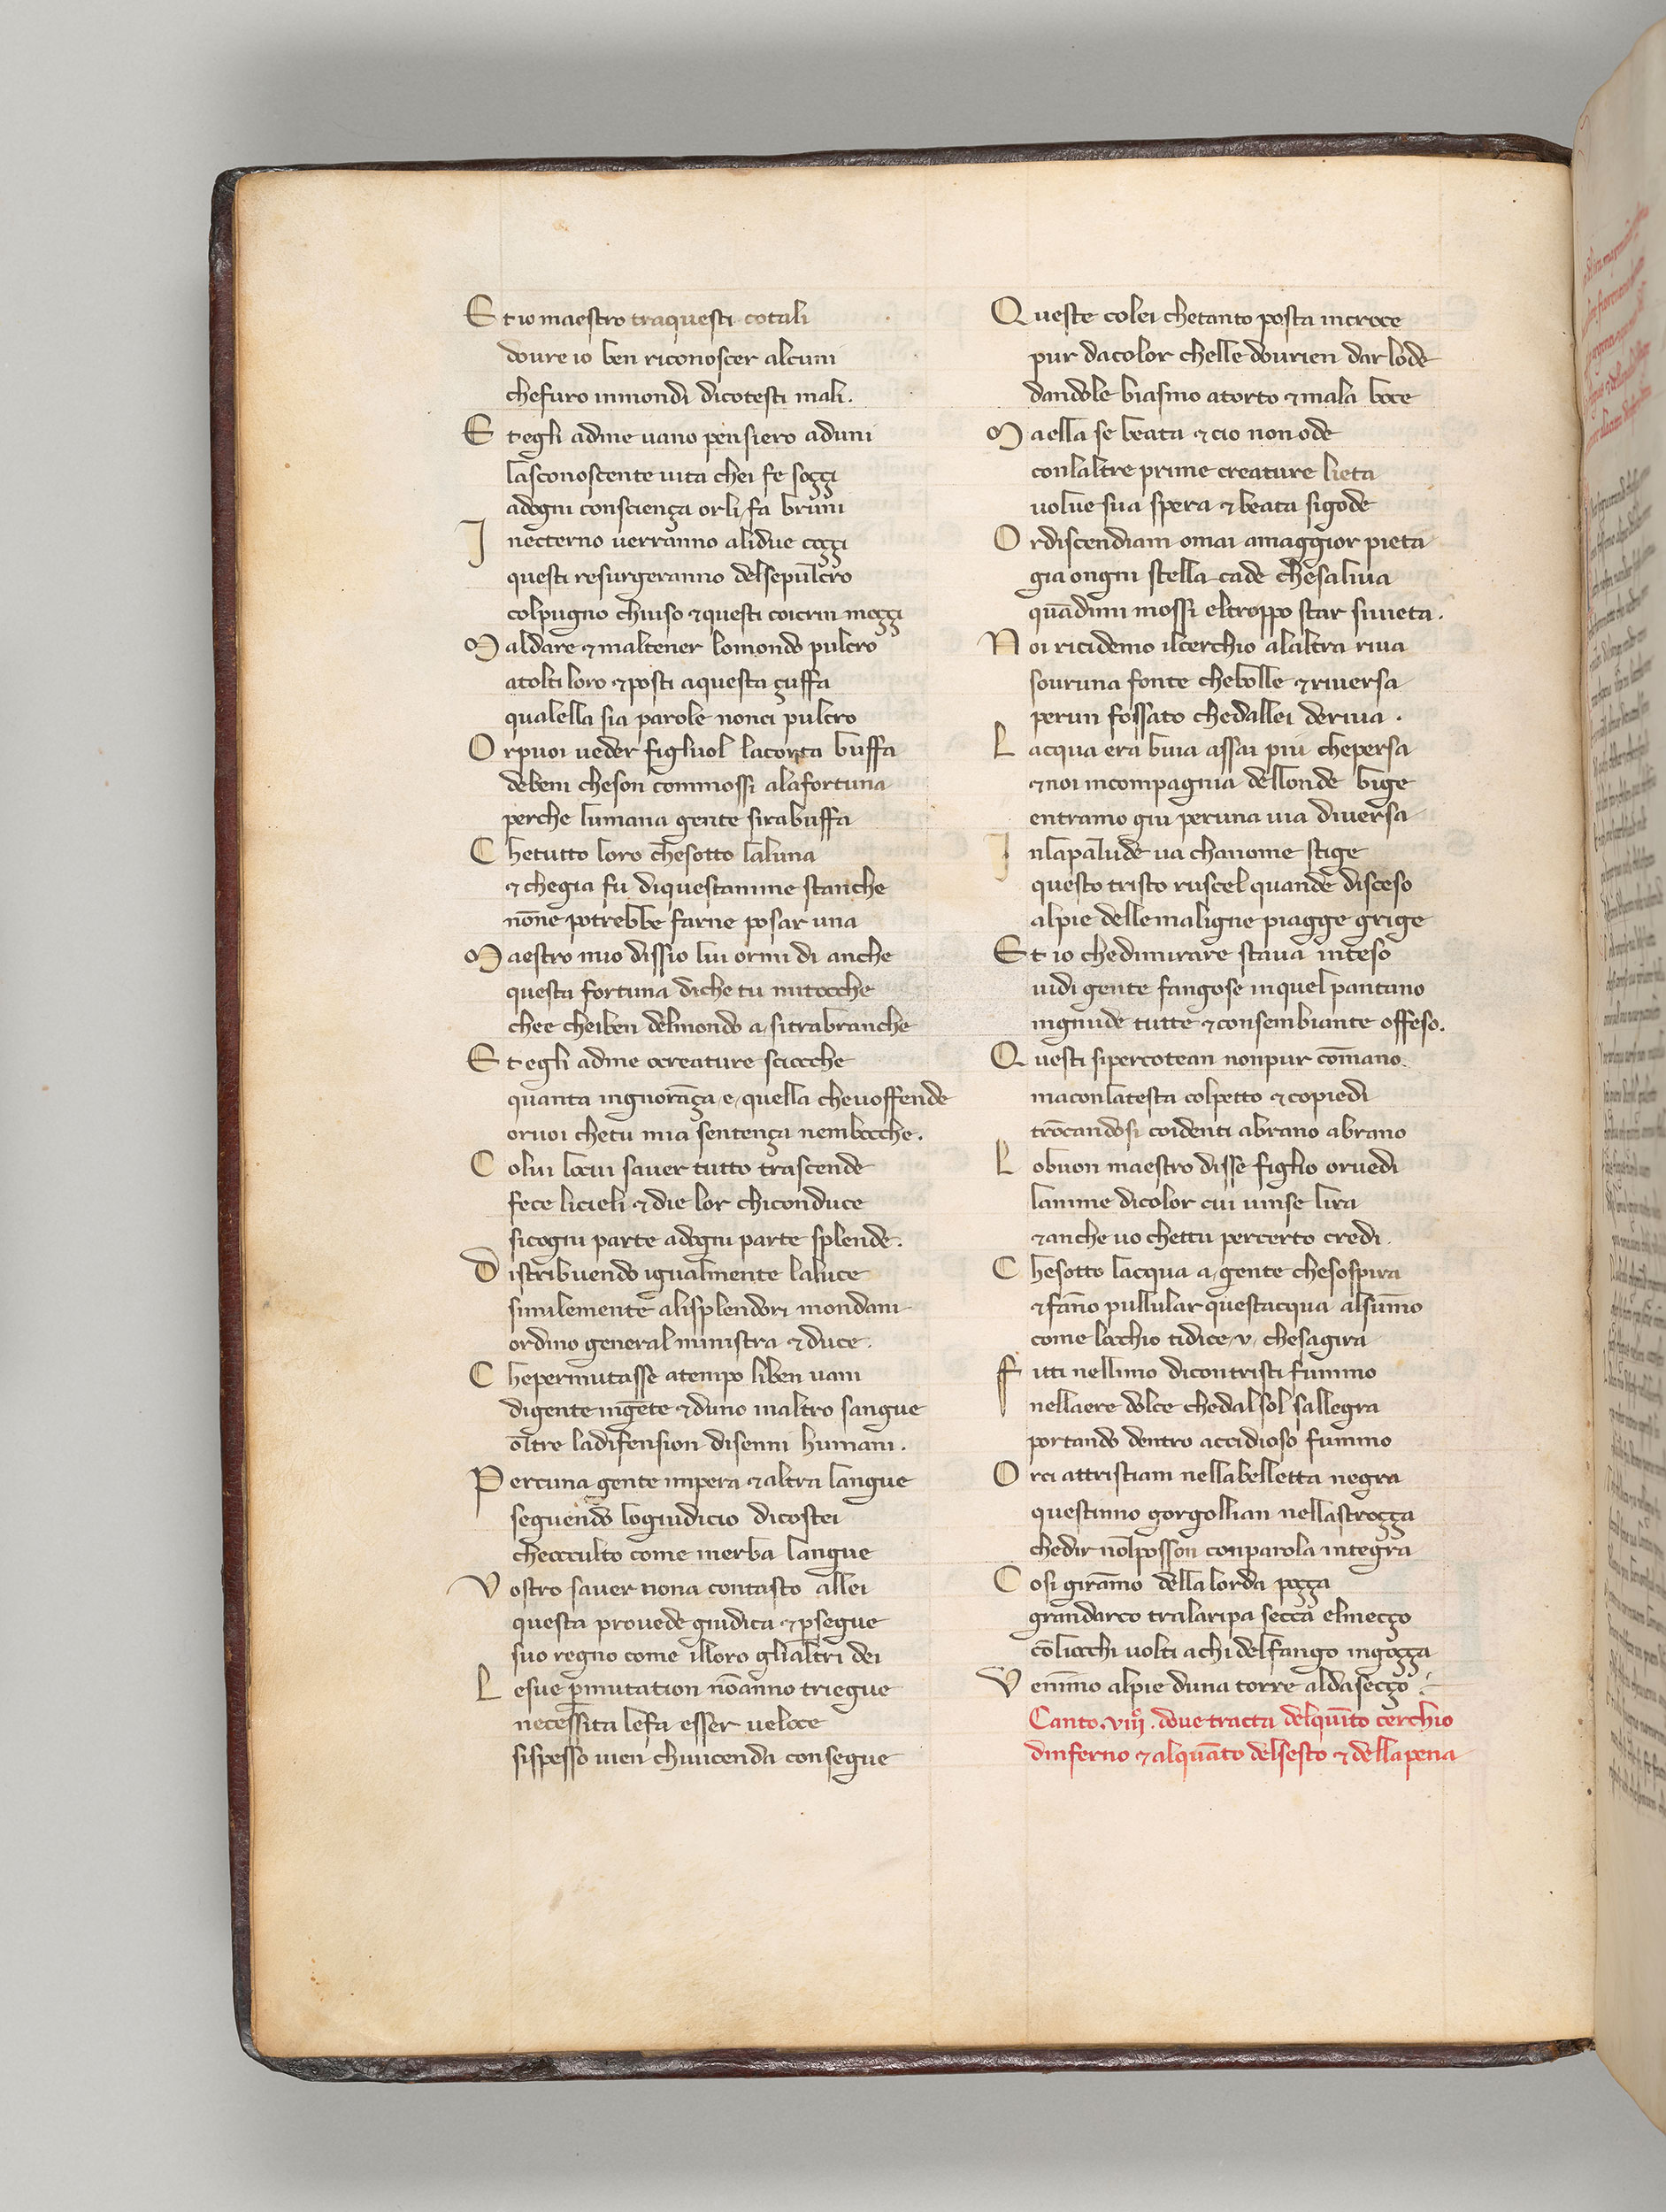 Et io maestro traquesti cotali
doure io ben riconoscer alcuni
chefuro inmondi dicotesti mali.
Et egli adme uano pensiero aduni
lasconoscente uita chei fe soççi
adogni consciença orli fa bruni
Inecterno uerranno alidue coççi
questi resurgeranno delsepulcro
colpugno chiuso ⁊questi coicrin moççi
Maldare ⁊maltener lomondo pulcro
atolti loro ⁊posti aquesta çuffa
qualella sia parole nonci pulcro
Orpuoi ueder figliuol lacorta buffa
debeni cheson commossi alafortuna
perche lumana gente sirabuffa
Chetutto loro chesotto laluna
⁊chegia fu diquestanime stanche
nōne potrebbe farne posar una
Maestro mio dissio lui ormi di anche
questa fortuna diche tu mitocche
chee cheiben delmondo a, sitrabranche
Et egli adme ocreature sciocche
quanta ingnorāça, e, quella cheuoffende
oruoi chetu mia sentença nembocche.
Colui locui sauer tutto trascende
fece licieli ⁊die lor chiconduce
sicogni parte adogni parte splende.
Distribuendo igualmente laluce
similemente alisplendori mondani
ordino general ministra ⁊duce.
Chepermutasse atempo liben uani
digente ingēte ⁊duno inaltro sangue
oltre ladifension disenni humani.
Percuna gente impera ⁊altra langue
seguendo logiudicio dicostei
cheocculto come inerba langue
Vostro sauer nona contasto allei
questa prouede giudica ⁊ꝑsegue
suo regno come illoro glialtri dei
Lesue ꝑmutation nōanno triegue
necessita lefa esser ueloce
sispesso uien chiuicenda consegue
Queste colei chetanto posta incroce
pur dacolor chelle dourien dar lode
dandole biasmo atorto ⁊mala boce
Maella se beata ⁊cio non ode
conlaltre prime creature lieta
uolue sua spera ⁊beata sigode
Ordiscendiam omai amaggior pieta
gia ongni stella cade chesaliua
quādimi mossi eltroppo star siuieta.
Noi ricidemo ilcerchio alaltra riua
souruna fonte chebolle ⁊riuersa
perun fossato chedallei deriua.
Lacqua era buia assai piu chepersa
⁊noi incompagnia dellonde bige
entramo giu peruna uia diuersa
Inlapalude ua chanome stige
questo tristo ruscel quande disceso
alpie dellemaligne piagge grige
Et io chedimirare staua inteso
uidi gente fangose inquel pantano
ingnude tutte ⁊consembiante offeso.
Questi sipercotean nonpur cōmano.
maconlatesta colpetto ⁊copiedi
trōcandosi coidenti abrano abrano
Lobuon maestro disse figlio oruedi
lanime dicolor cui uinse lira
⁊anche uo chettu percerto credi.
Chesotto lacqua a, gente chesospira
⁊fāno pullular questacqua alsūmo
come locchio tidice, v, chesagira
Fitti nellimo dicontristi fummo
nellaere dolce chedalsol sallegra
portando dentro accidioso fummo
Orci attristiam nellabelletta negra
questinno gorgollian nellastroçça
chedir nolposson conparola integra
Cosi girāmo dellalorda poçça
grandarco tralaripa secca elmecço
cōliocchi uolti a chi delfango ingoçça
Venimo alpie duna torre aldaseçço.
Canto. viijº. doue tracta delquīto cerchio
dinferno ⁊alquāto delsesto ⁊dellapena